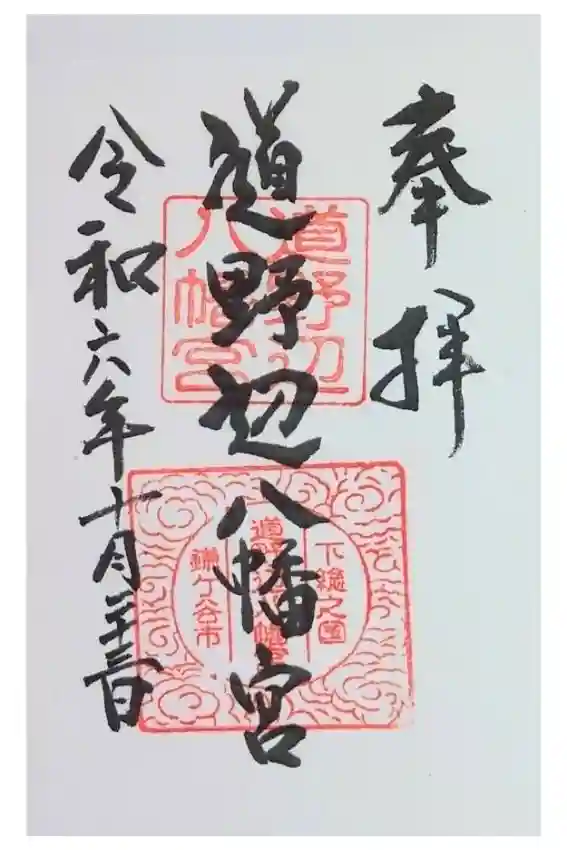 奉拝
道野辺八幡宮
令和六年十月二十三日
道野辺
八幡宮
下總之國
道野辺八幡宮
鎌ケ谷市